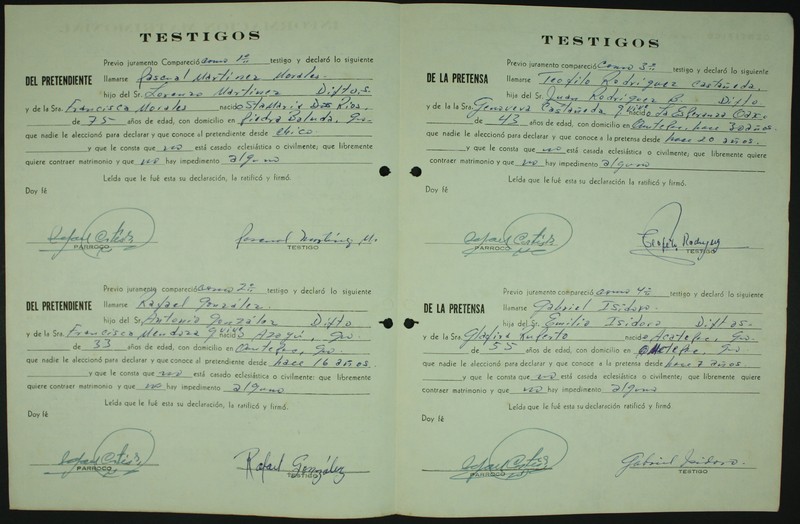 TESTIGOS
Previo juramento Compareció como 1º testigo y declaró lo siguiente
DEL PRETENDIENTE
llamarse Pascual Martinez Morales.
hijo del Sr. Lorenzo Martinez Diftos.
y de la Sra. Francisca Morales nacido Sta Maria Dos Rios.
de 75 años de edad, con domicilio en Piedra
que nadie le aleccionó para declarar y que conoce al pretendiente desde chico.
y que le consta que no está casado eclesiástica o civilmente; que libremente
quiere contraer matrimonio y que no hay impedimento alguno
Leída que le fué esta su declaración, la ratificó y firmó.
Doy fé
Rafael Cortés
PARROCO
TESTIGO
Previo juramento compareció como 2º testigo y declaró lo siguiente
DEL PRETENDIENTE
llamarse Rafael González.
hijo del Sr. Antonio González Difto
y de la Sra. Francisca Mendoza q. vive nacido Azoyú, Gro.
de 33 años de edad, con domicilio en Gro.
que nadie le aleccionó para declarar y que conoce al pretendiente desde hace 16 años.
y que le consta que no está casado eclesiástica o civilmente: que libremente
quiere contraer matrimonio y que no hay impedimento alguno
Leída que le fué esta su declaración, la ratificó y firmó.
Doy fé
Rafael Cortés
PARROCO
Rafael González
TESTIGO
TESTIGOS
Previo juramento compareció como 3º testigo y declaró lo siguiente
DE LA PRETENSA
llamarse Teofilo Rodriguez Castañeda.
hijo del Sr. Juan Rodriguez B. Difto
y de la Sra. Genoveva Castañeda q. vive nacido La Esperanza Oax.
de 43 años de edad, con domicilio en hace años.
que nadie le aleccionó para declarar y que conoce a la pretensa desde hace 20 años.
y que le consta que no está casada eclesiástica o civilmente; que libremente quiere
contraer matrimonio y que no hay impedimento alguno
Leída que le fué esta su declaración, la ratificó y firmó.
Doy fé
Rafael Cortés
PARROCO
Teofilo Rodriguez
TESTIGO
Previo juramento compareció como 4º testigo y declaró lo siguiente
DE LA PRETENSA
llamarse Gabriel Isidoro.
hijo del Sr. Emilio Isidoro Diftos-
y de la Sra. Glafira nacido Gro.
de 55 años de edad, con domicilio en Gro
que nadie le aleccionó para declarar y que conoce a la pretensa desde hace años.
y que le consta que no está casada eclesiástica o civilmente; que libremente quiere
contraer matrimonio y que no hay impedimento alguno
Leída que le fué esta su declaración, la ratificó y firmó.
Doy fé
Rafael Cortés
PARROCO
Gabriel Isidoro.
TESTIGO